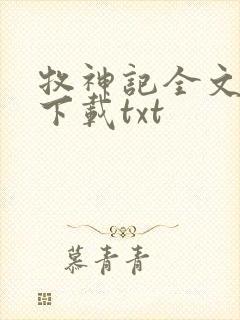 牧神記全文
下載txt
慕青青